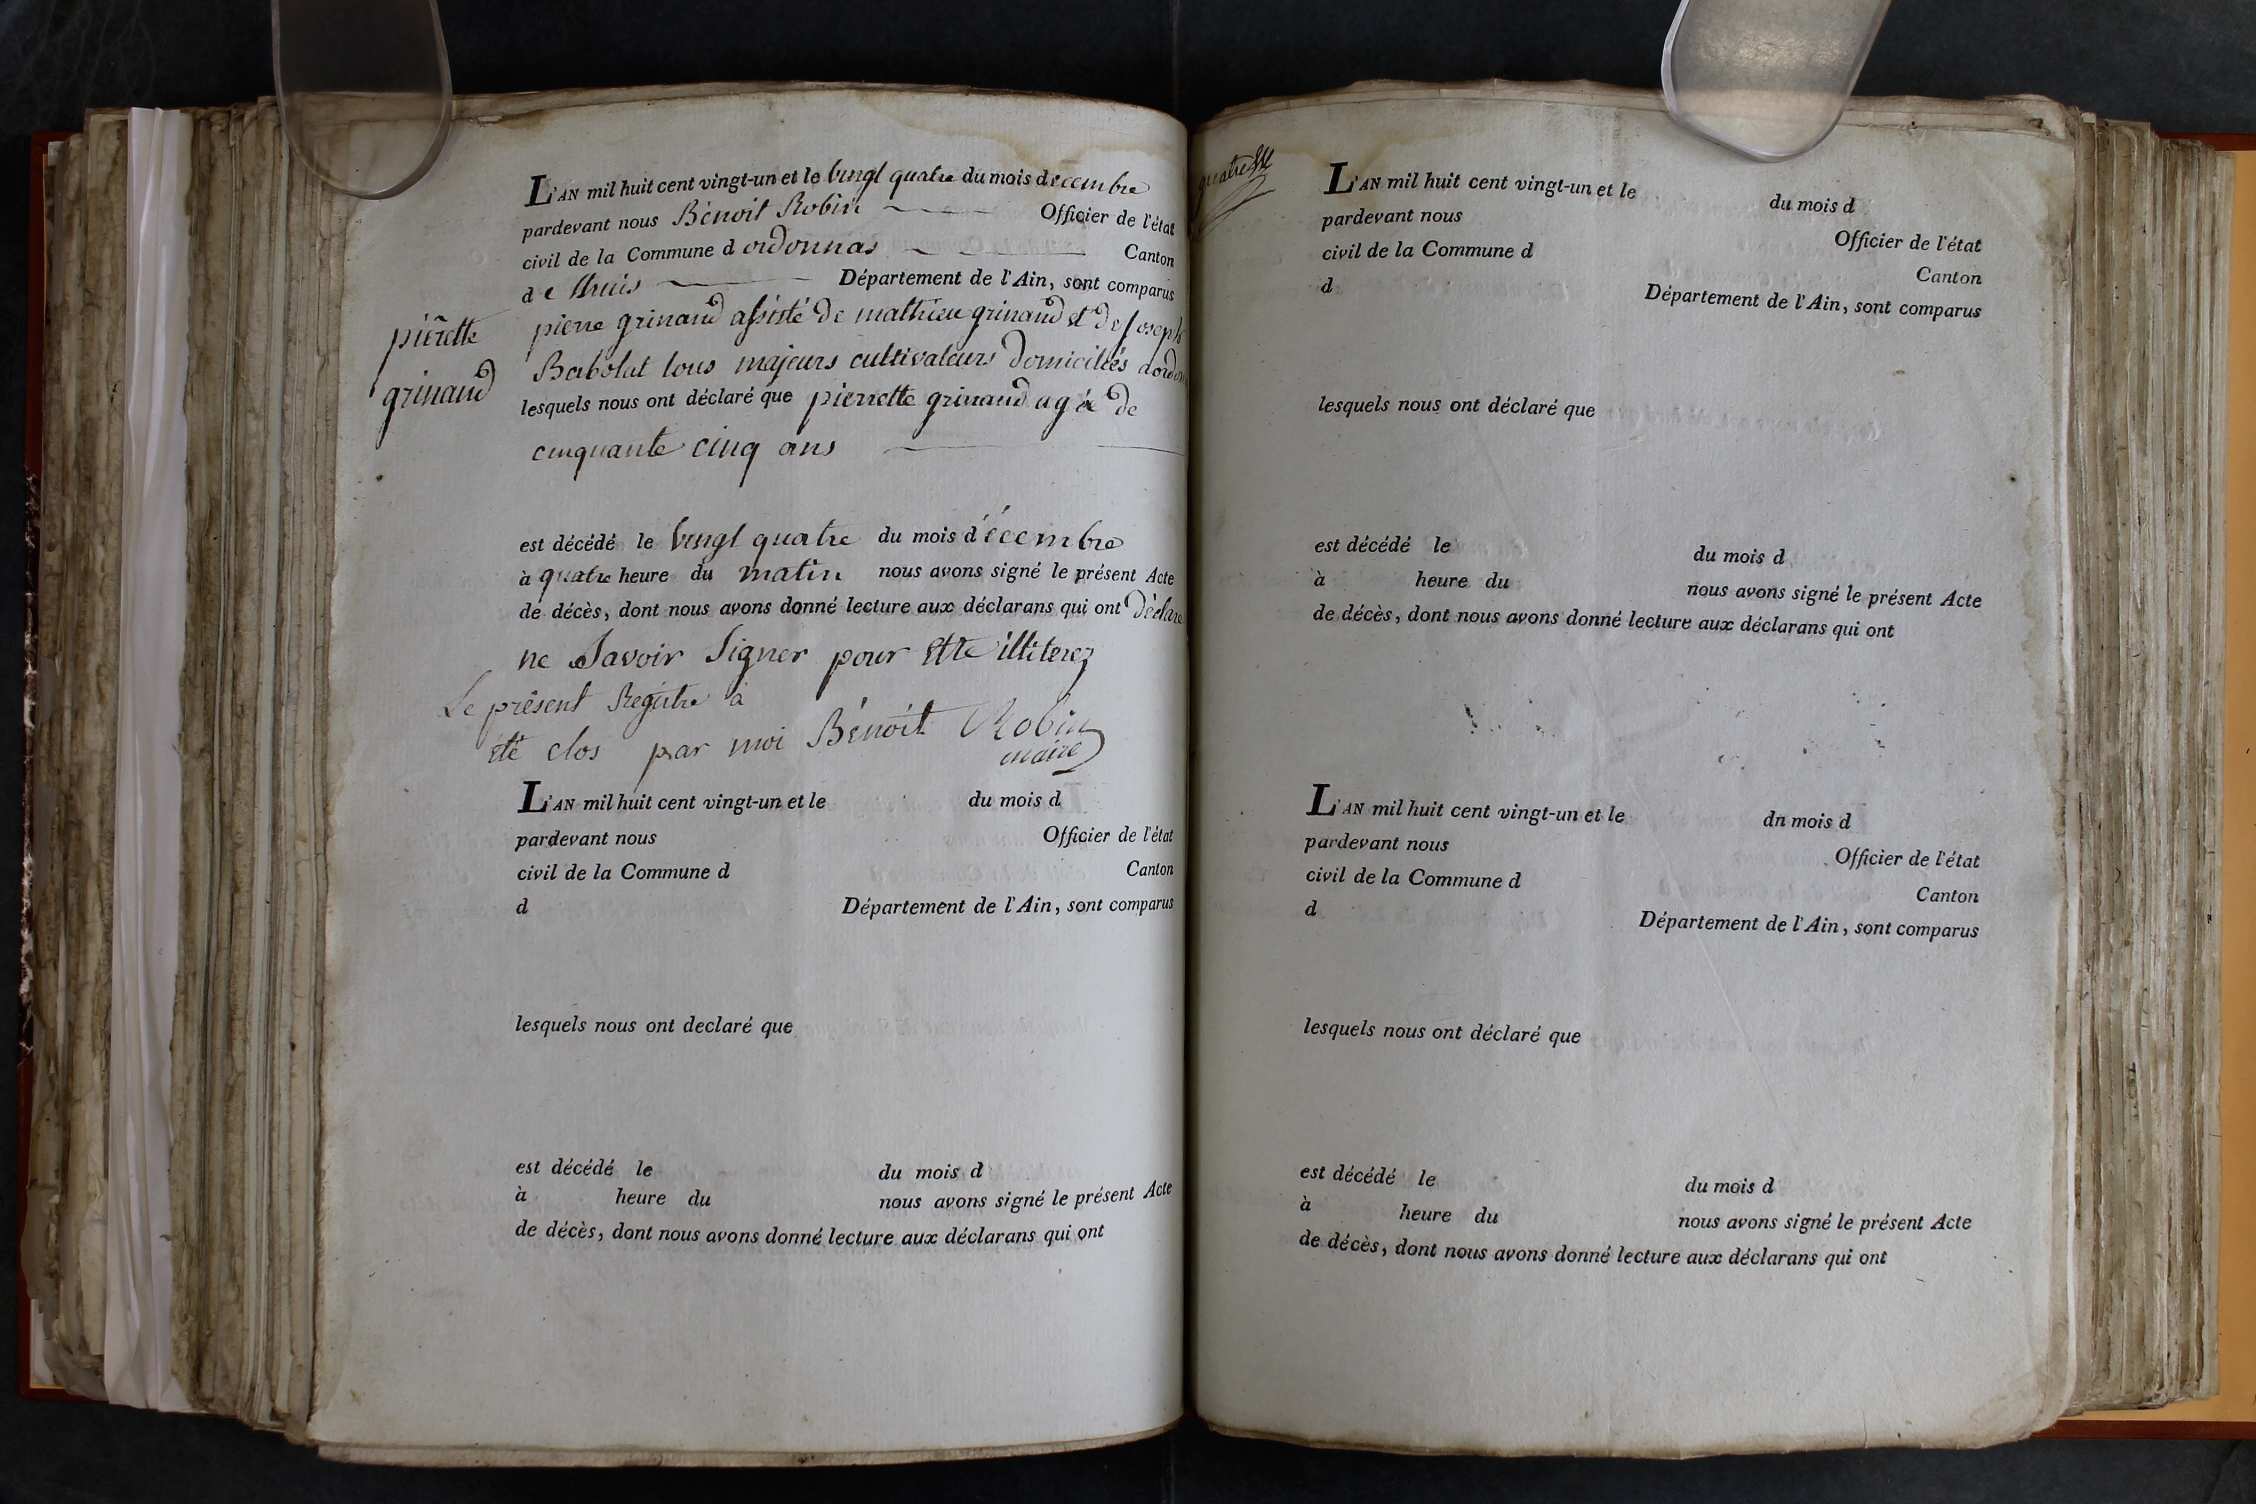 L'AN mil huit cent vingt-un et le vingt quatre du mois decembre
pardevant nous Bénoit Robin Officier de l'état
civil de la Commune d ordonnas Canton
de lhuis Département de l'Ain, sont comparus
pierrette
grinand
pierre grinand assisté de mathieu grinand et de Joseph
Babolat tous majeurs cultivateurs domiciliés
lesquels nous ont déclaré que pierrette grinand agée de
cinquante cinq ans
est décédé le vingt quatre du mois décembre
à quatre heure du matin nous avons signé le présent Acte
de décès, dont nous avons donné lecture aux déclarans qui ont déclaré
ne Savoir Signer pour être illiterez
Le présent Registre a
été clos par moi Bénoit Robin
maire
L'AN mil huit cent vingt-un et le du mois d
pardevant nous Officier de l'état
civil de la Commune d Canton
d Département de l'Ain, sont comparus
lesquels nous ont declaré que
est décédé le du mois d
à heure du nous avons signé le présent Acte
de décès, dont nous avons donné lecture aux déclarans qui ont
L'AN mil huit cent vingt-un et le du mois d
pardevant nous Officier de l'état
civil de la Commune d Canton
d Département de l'Ain, sont comparus
lesquels nous ont déclaré que
est décédé le du mois d
à heure du nous avons signé le présent Acte
de décès, dont nous avons donné lecture aux déclarans qui ont
L'AN mil huit cent vingt-un et le dn mois d
pardevant nous Officier de l'état
civil de la Commune d Canton
d Département de l'Ain, sont comparus
lesquels nous ont déclaré que
est décédé le du mois d
à heure du nous avons signé le présent Acte
de décès, dont nous avons donné lecture aux déclarans qui ont